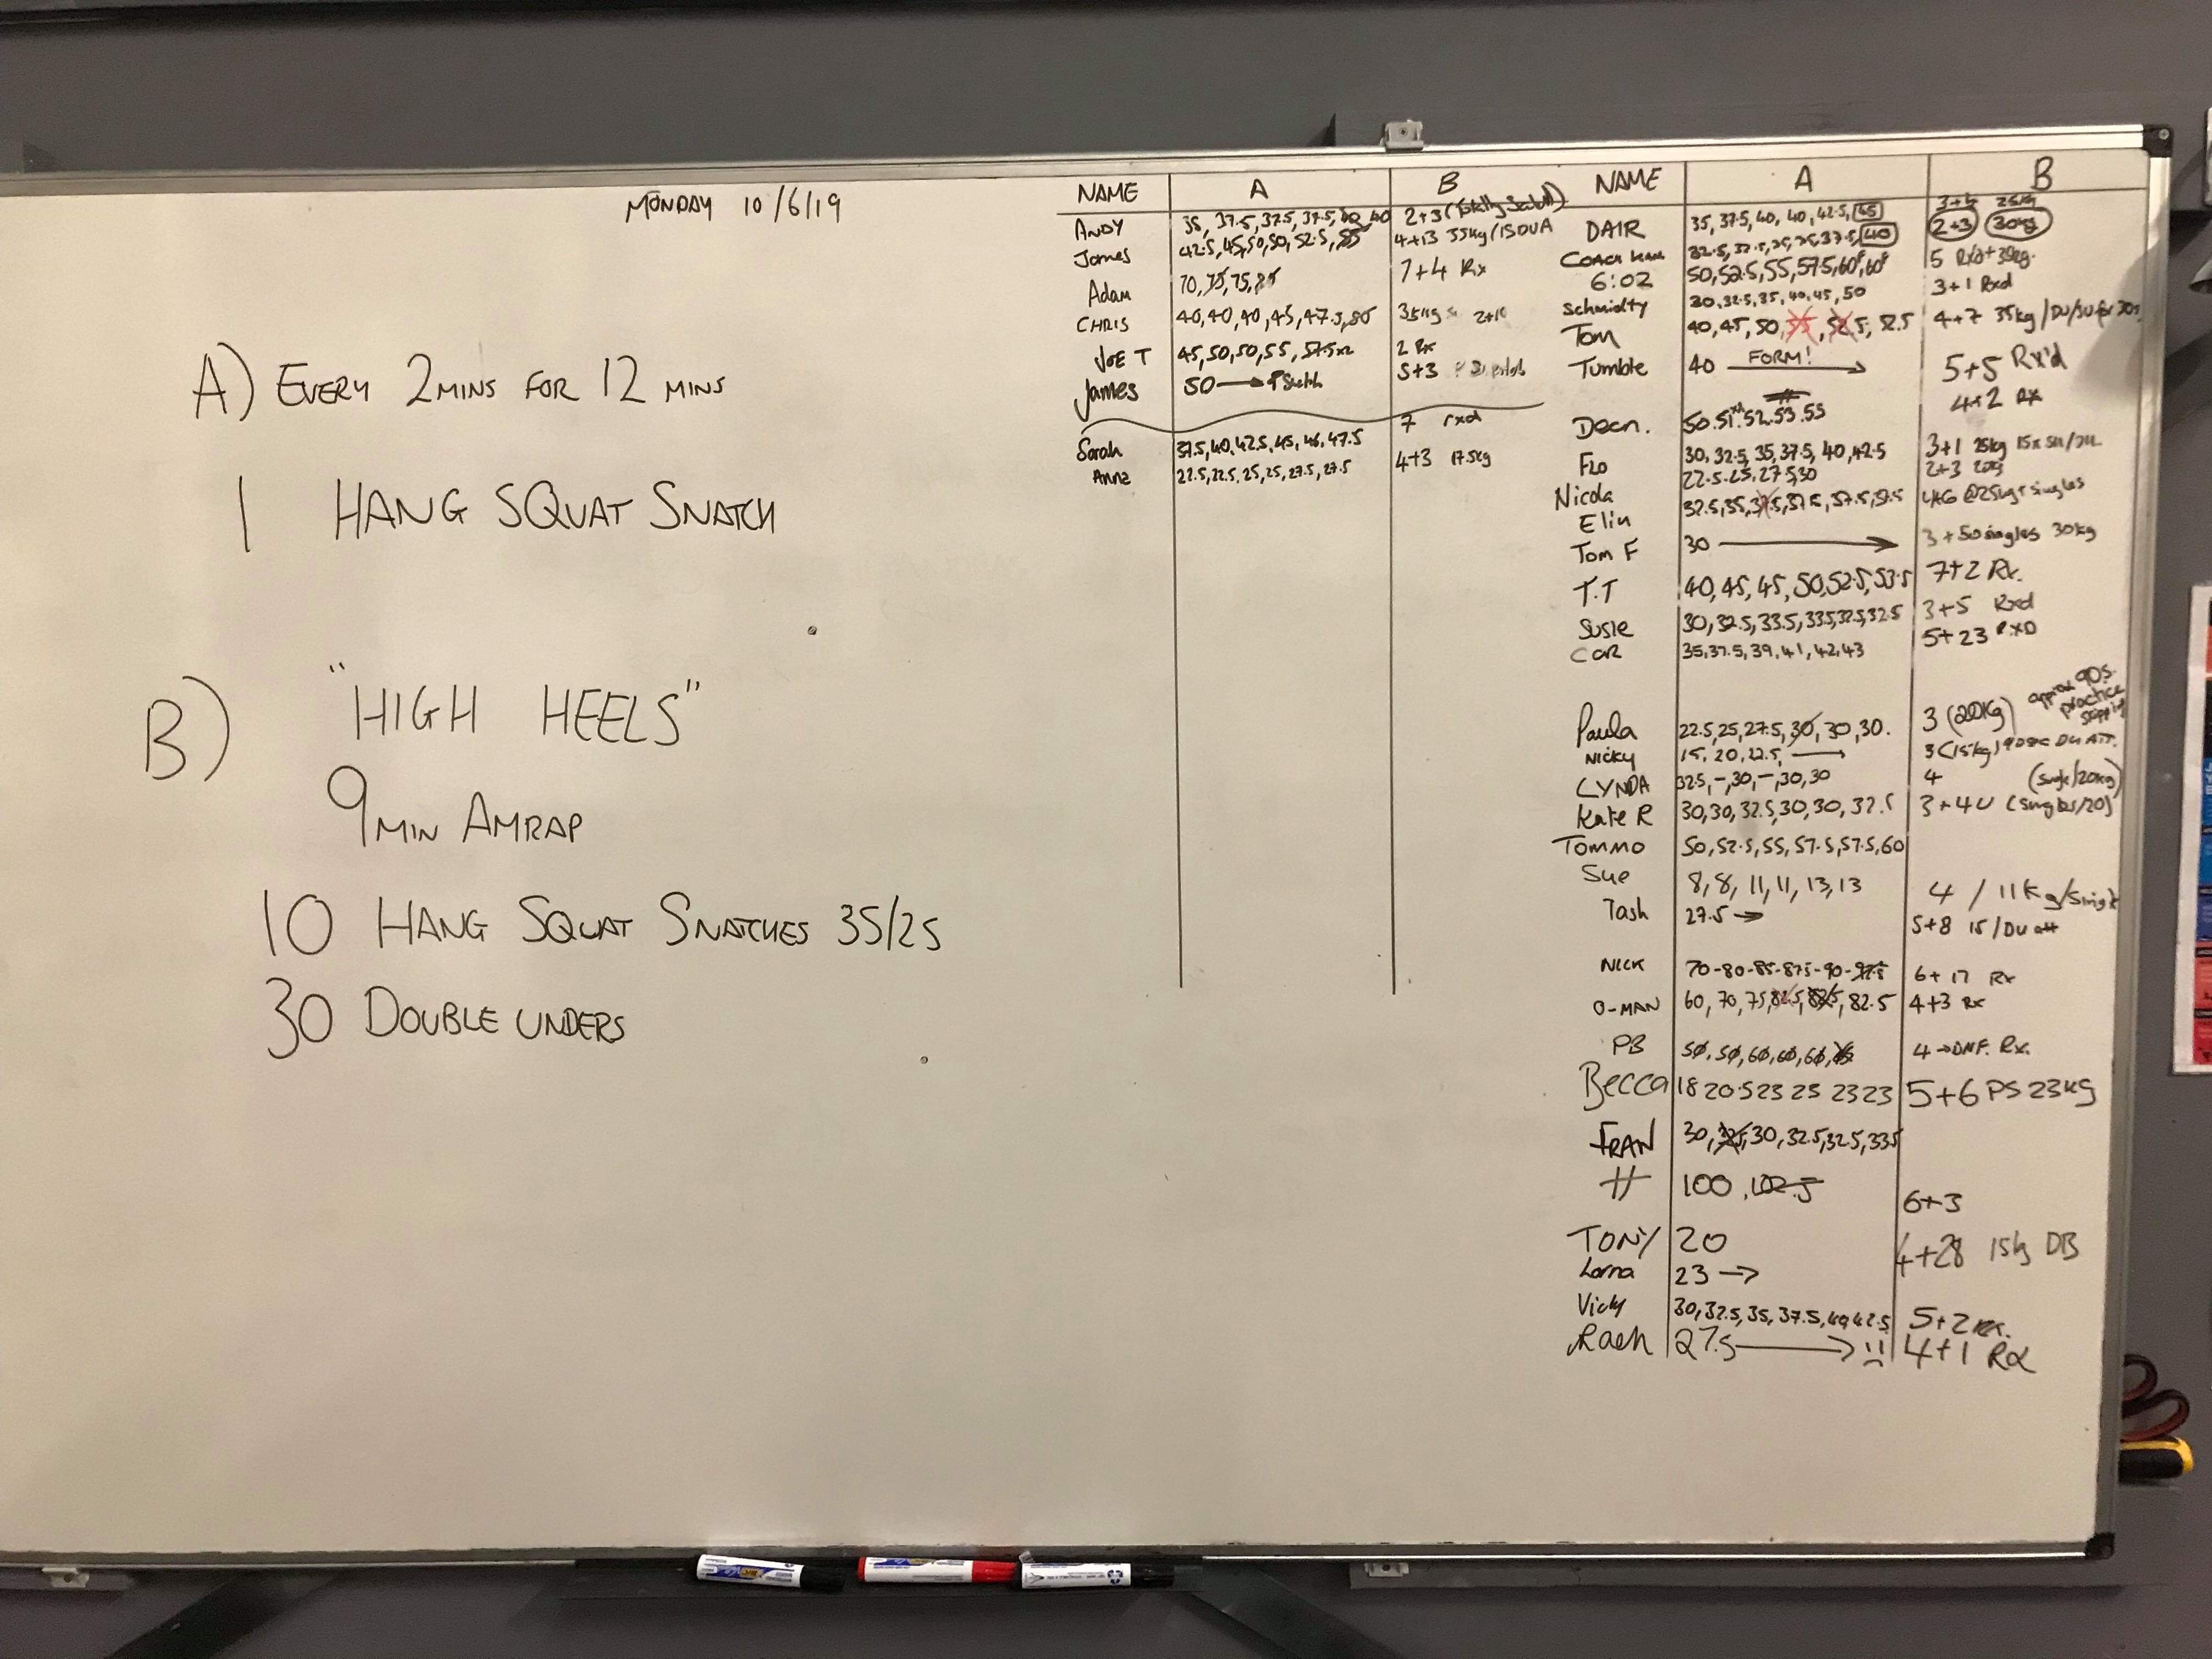 MONDAY 10/6/19
A) EVERY 2MINS FOR 12 MINS
1 HANG SQUAT SNATCH
B) "HIGH HEELS"
9MIN AMRAP
10 HANG SQUAT SNATCHES 35/25
30 DOUBLE UNDERS
NAME A B
ANDY 35, 37.5, 37.5, 37.5, 40, 40 2+3
James 42.5, 45, 50, 50, 52.5, 55 4+13 35kg/15DUA
Adam 70, 75, 75, 7+4 Rx
CHRIS 40, 40, 40, 45, 47.5, 50 35kg
JOE T 45, 50, 50, 55, 57.5x2 2 Rx
James 50 → 5+3
7 rxd
Sarah 37.5, 40, 42.5, 45, 46, 47.5
Anna 22.5, 22.5, 25, 25, 27.5, 27.5 4+3 17.5kg
NAME A B
3+4 25kg
DAIR 35, 37.5, 40, 40, 42.5, 45 2+3 30kg
COACH 32.5, 37.5, 35, 35, 37.5, 40
6:02 50, 52.5, 55, 57.5, 60, 60 5 Rxd+30kg.
Schmidty 30, 32.5, 35, 40, 45, 50 3+1 Rxd
Tom 40, 45, 50, 55, 52.5, 52.5 4+7 35kg/DU/SU for 30s
Tumble 40 FORM! → 5+5 Rx'd
4+2 Rx
Dean. 50. 51. 52. 53. 55
Flo 30, 32.5, 35, 37.5, 40, 42.5 3+1 25kg 15x SU/DU
Nicola 22.5. 25, 27.5, 30 2+3 20kg
Elin 32.5, 35, 37.5, 37.5, 37.5, 37.5 4+6 @25kg+singles
Tom F 30 → 3+50singles 30kg
T.T 40, 45, 45, 50, 52.5, 53.5 7+2 Rx.
Susie 30, 32.5, 33.5, 33.5, 32.5, 32.5 3+5 Rxd
COZ 35, 37.5, 39, 41, 42, 43 5+23 RXD
Paula 22.5, 25, 27.5, 30, 30, 30. 3 (20kg) approx 90s. practice skipping
NICKY 15, 20, 22.5, → 3(15kg) 90sec DU ATT.
LYNDA 32.5, -, 30, -, 30, 30 4 (single/20kg)
Kate R 30, 30, 32.5, 30, 30, 32.5 3+40 (Singles/20)
Tommo 50, 52.5, 55, 57.5, 57.5, 60
Sue 8, 8, 11, 11, 13, 13 4 / 11kg/Single
Tash 27.5 → 5+8 15/DU att
NICK 70-80-85-87.5-90-92.5 6+17 Rx
O-MAN 60, 70, 75, 82.5, 82.5, 82.5 4+3 Rx
PB 50, 50, 60, 60, 60, 4→DNF. Rx.
Becca 18 20.5 23 23 23 23 5+6 PS 23kg
FRAN 30, 32.5, 30, 32.5, 32.5, 33.5
H 100, 102.5 6+3
TONY 20 4+28 15kg DB
Lorna 23 →
Vicky 30, 32.5, 35, 37.5, 40, 42.5 5+2 rx.
Rach 27.5 → 4+1 Rx